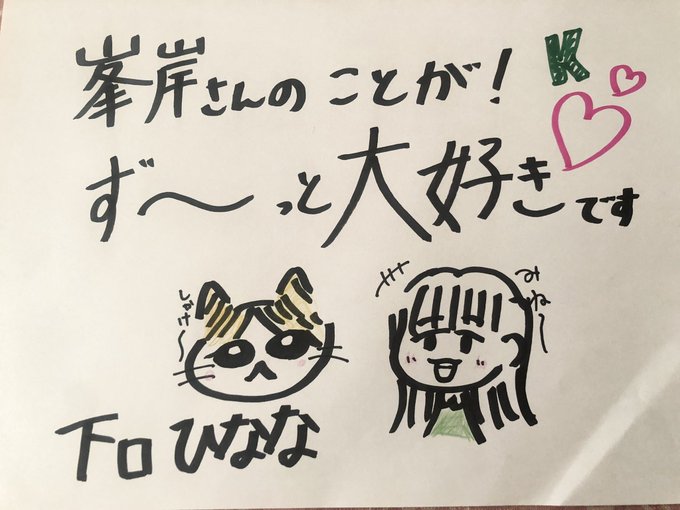 峯岸さんのことが！
K
ず〜っと大好きです
しかけ〜
みね〜
下口ひなな